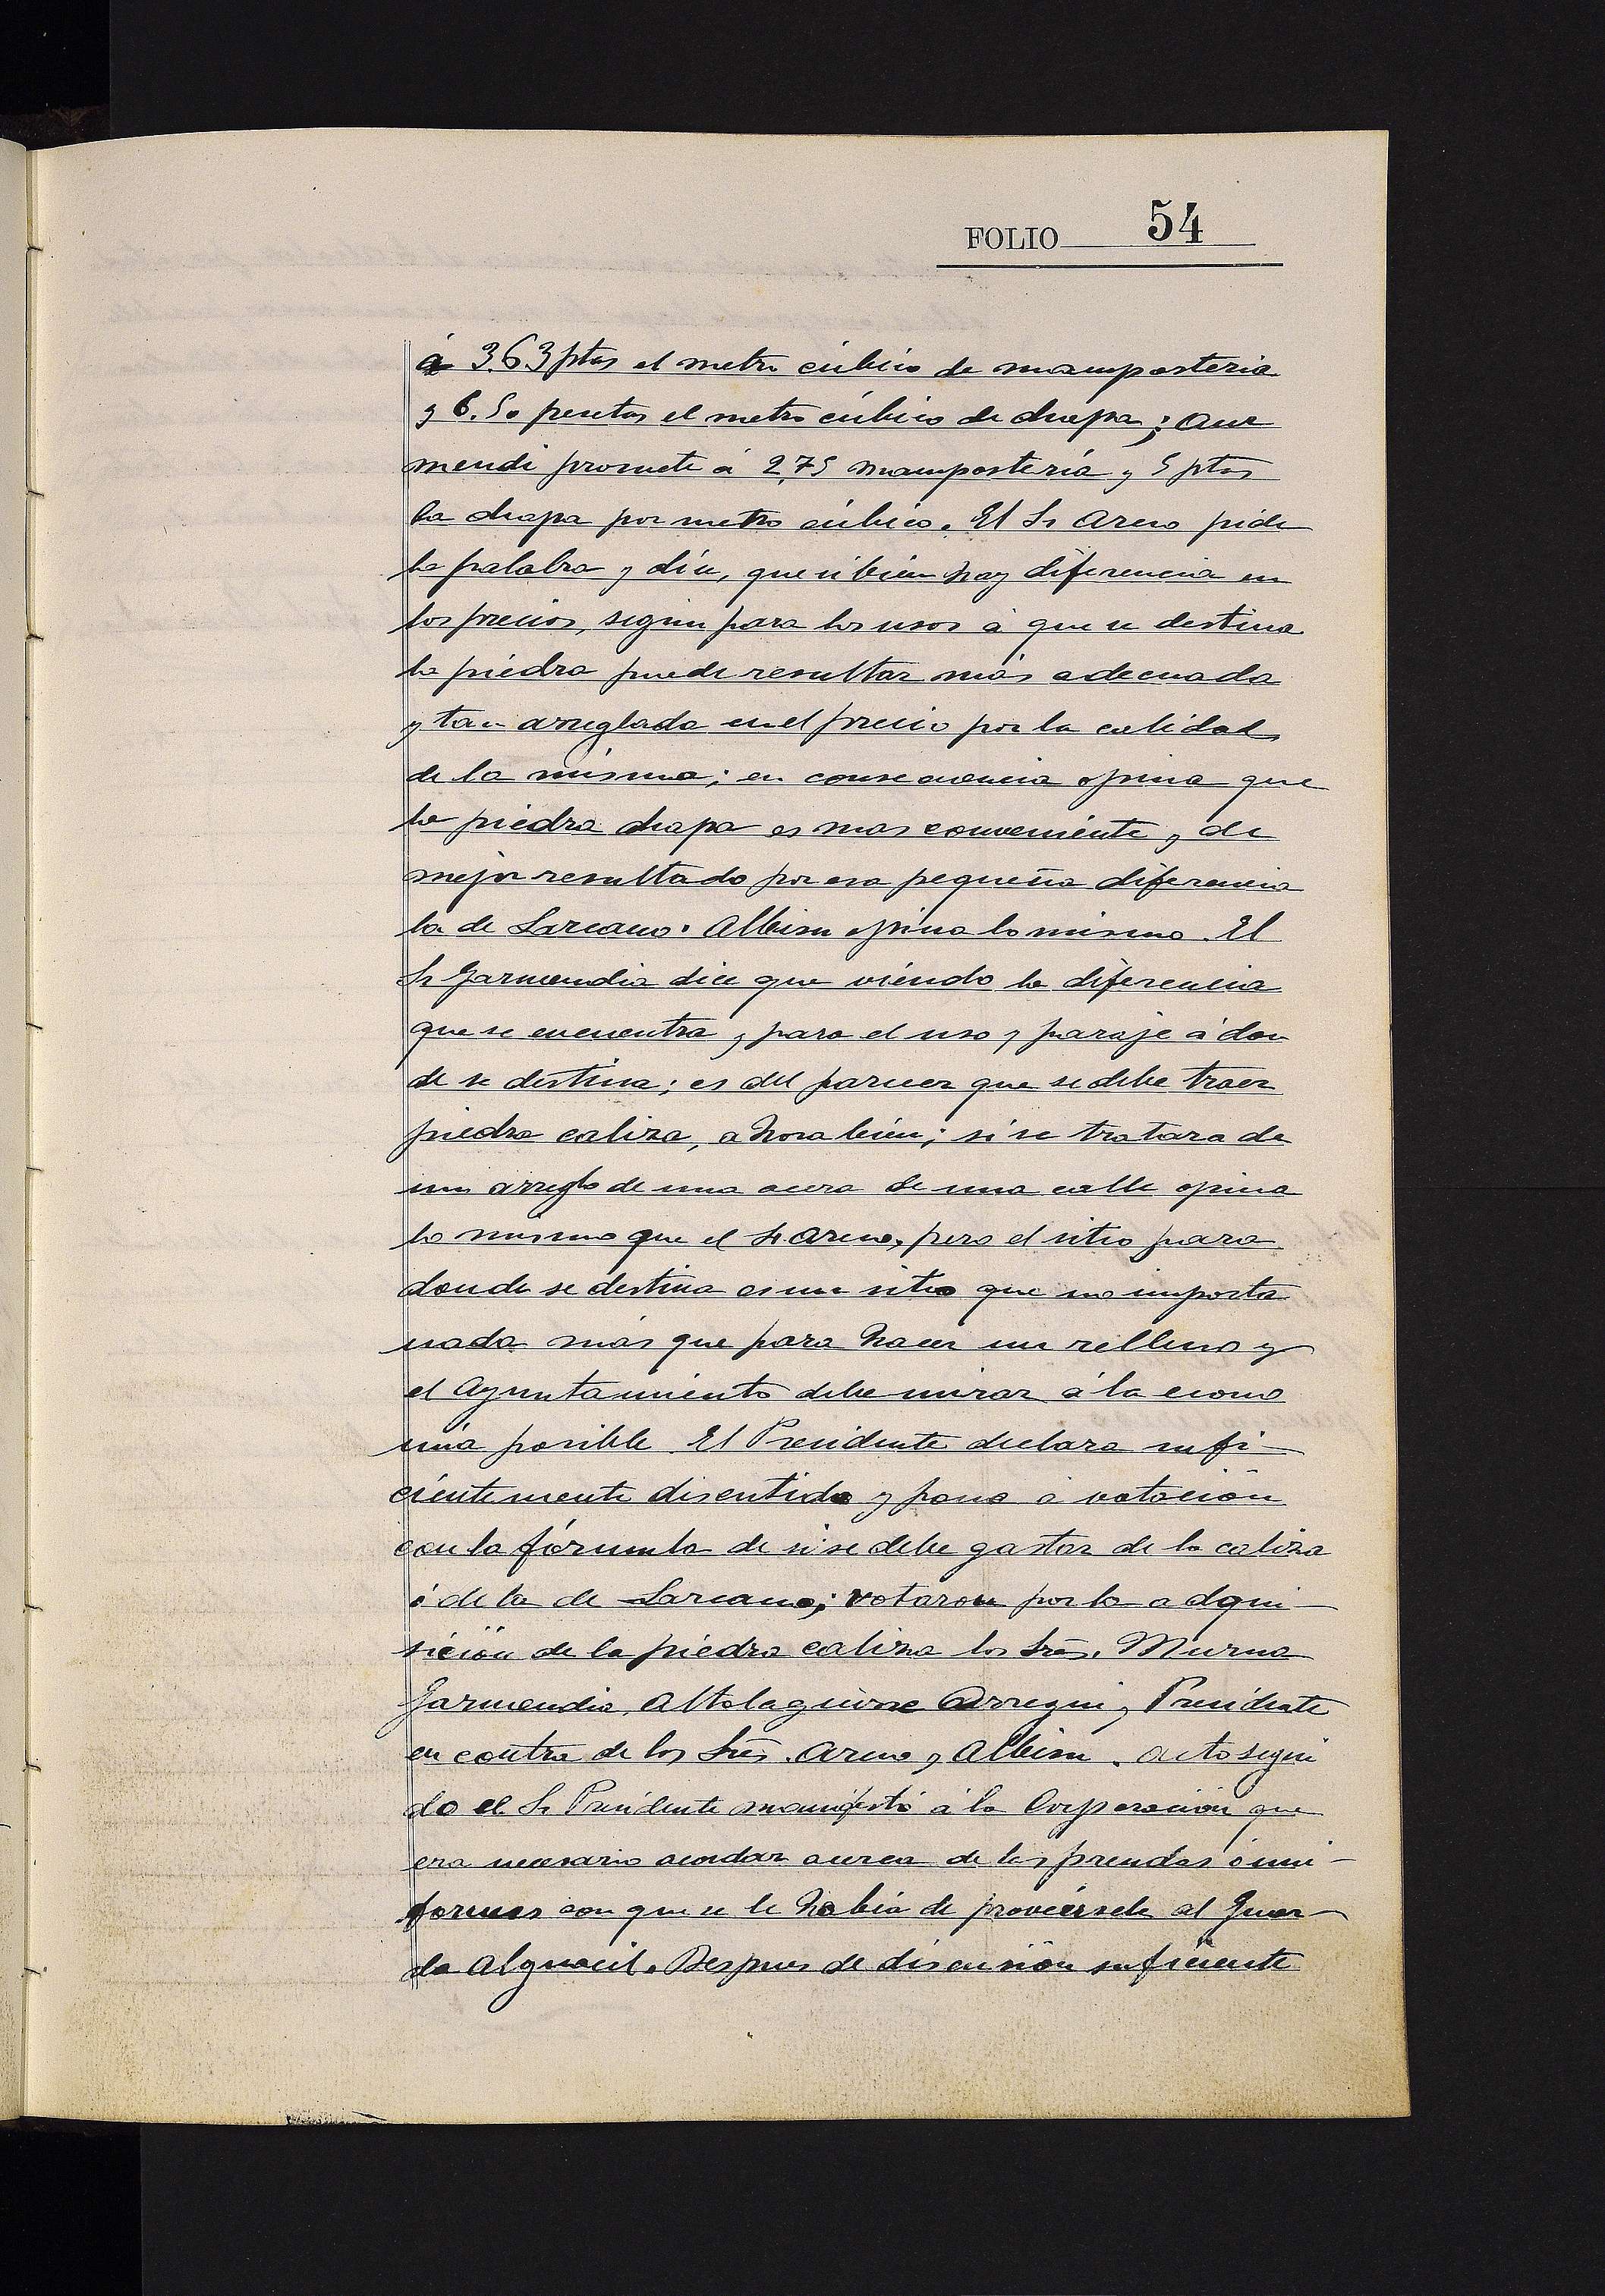 FOLIO 54
á 3.63 ptas el metro cúbico de mamposteria
y 6.50 pesetas el metro cúbico de chapa; Aur
mendi promete á 2,75 mampostería y 5 ptas
la chapa por metro cúbico. El Sr Areno pide
la palabra y dice, que si bien hay diferencia en
los precios, según para los usos á que se destina
la piedra puede resultar más adecuada
y tan arreglada en el precio por la calidad
de la misma; en consecuencia opina que
la piedra chapa es mas conveniente y de
mejor resultado por esa pequeña diferencia
la de Lazcano. Albisu opina lo mismo. El
Sr Garmendia dice que viendo la diferencia
que se encuentra y para el uso y paraje á don
de se destina; es del parecer que se debe traer
piedra caliza, ahora bien; si se tratara de
un arreglo de una acera de una calle opina
lo mismo que el Sr. Areno, pero el sitio para
donde se destina es un sitio que no importa
nada más que para hacer un relleno y
el Ayuntamiento debe mirar á la econo
mía posible El Presidente declara sufi-
cientemente discutido y pone á votación
con la fórmula de si se debe gastar de la caliza
ó de la de Lazcano; votaron por la adqui-
sición de la piedra caliza los Srēs. Murua
Garmendia, Altolaguirre Arregui y Presidente
en contra de los Srēs. Areno y Albisu. Acto segui
do el Sr Presidente manifestó á la Corporación que
era necesario acordar acerca de las prendas ó uni-
formes con que se le había de proveérsele al Guar-
da Alguacil. Despues de discusión suficiente